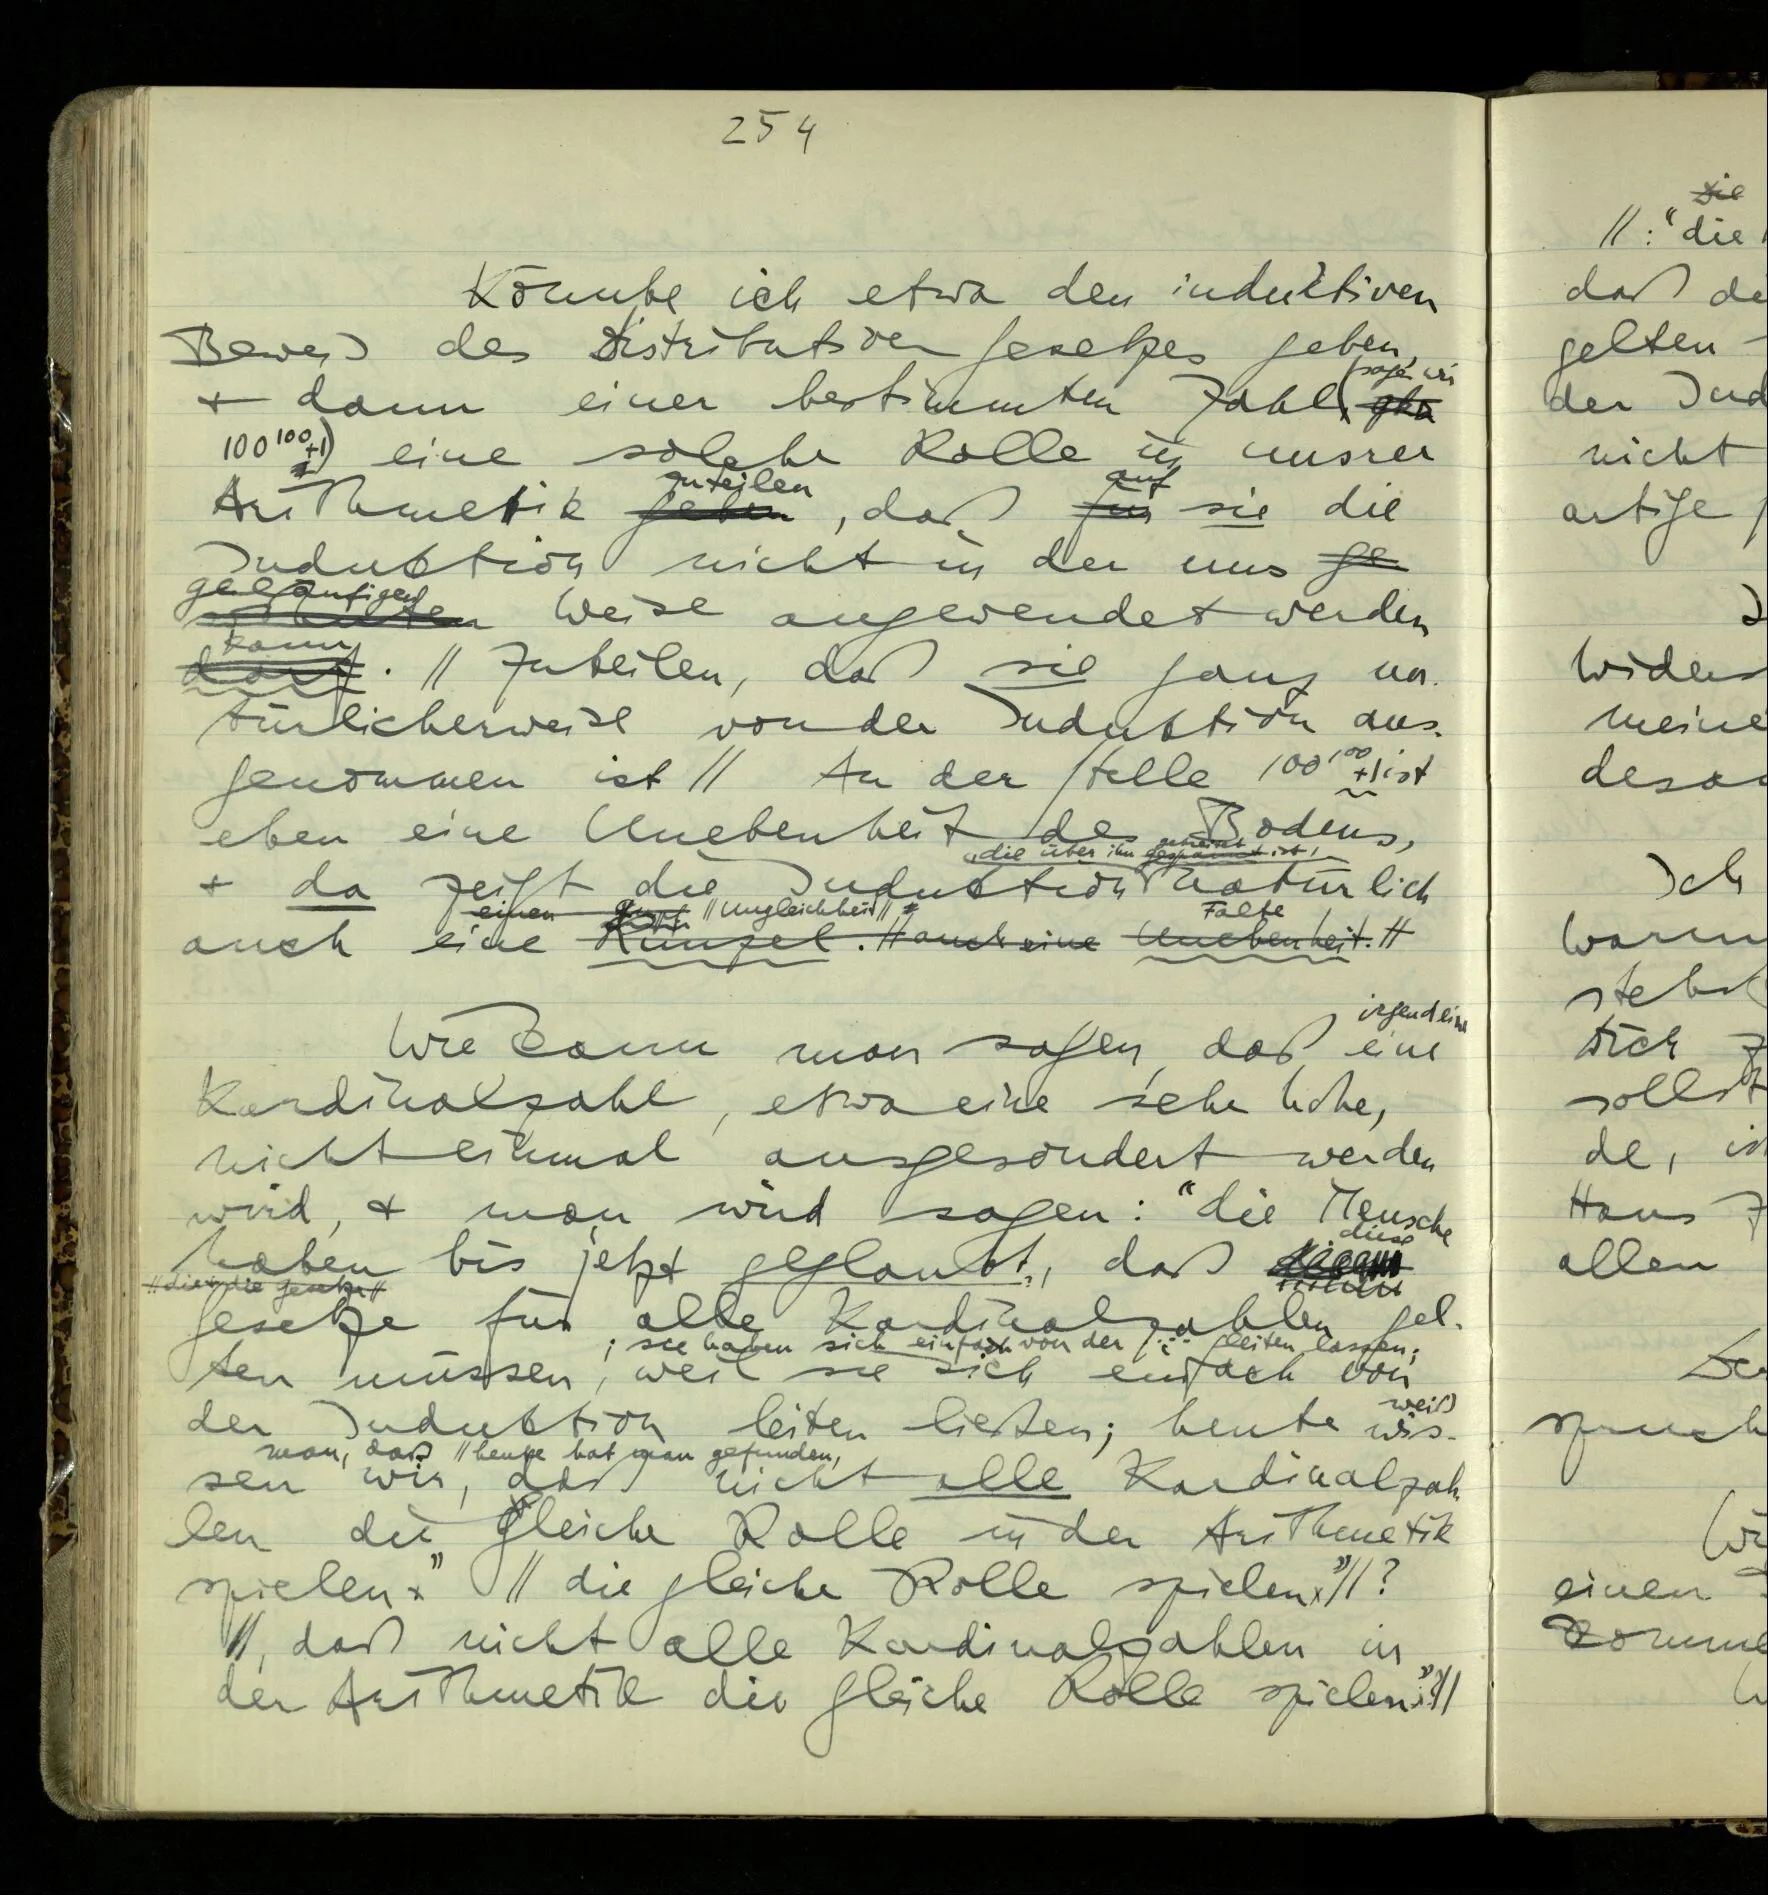 254
Könnte ich etwa den induktiven
Beweis des Distributiven Gesetzes geben,
(sagen wir
& dann einer bestimmten Zahl
100¹⁰⁰+1) eine solche Rolle in unsrer
zuteilen auf
Arithmetik geben, daß für sie die
Induktion nicht in der uns ge
geläufigen
Weise angewendet werden
kann
darf. // Zuteilen, daß sie ganz na-
türlicherweise von der Induktion aus-
genommen ist // An der Stelle 100¹⁰⁰+1 ist
eben eine Unebenheit des Bodens,
, die über ihn gebreitet gespannt ist,
& da zeigt die Induktion natürlich
einen // Ungleichheit // Falte
auch eine Runzel. // auch eine Unebenheit. //
irgendeine
Wie kann man sagen, daß eine
Kardinalzahl, etwa eine sehr hohe,
nicht einmal ausgesondert werden
wird, & man wird sagen: “die Mensche
diese
haben bis jetzt geglaubt, daß
// die // die Gesetze //
Gesetze für alle Kardinalzahlen gel-
; sie haben sich einfach von der I... leiten lassen;
ten müssen, weil sie sich einfach von
der Induktion leiten ließen; heute wis-
weiß
man, daß // heute hat man gefunden,
sen wir, daß nicht alle Kardinalzah
len die gleiche Rolle in der Arithmetik
spielen.” // die gleiche Rolle spielen.” // ?
//, daß nicht alle Kardinalzahlen in
der Arithmetik die gleiche Rolle spielen.”? //
Die
// : “die
daß di
gelten –
der Ind
nicht
artige
Wider
meine
desa
Ich
waru
steh
Dich
sollst
de, is
Hans
allen
spruch
einen
komme